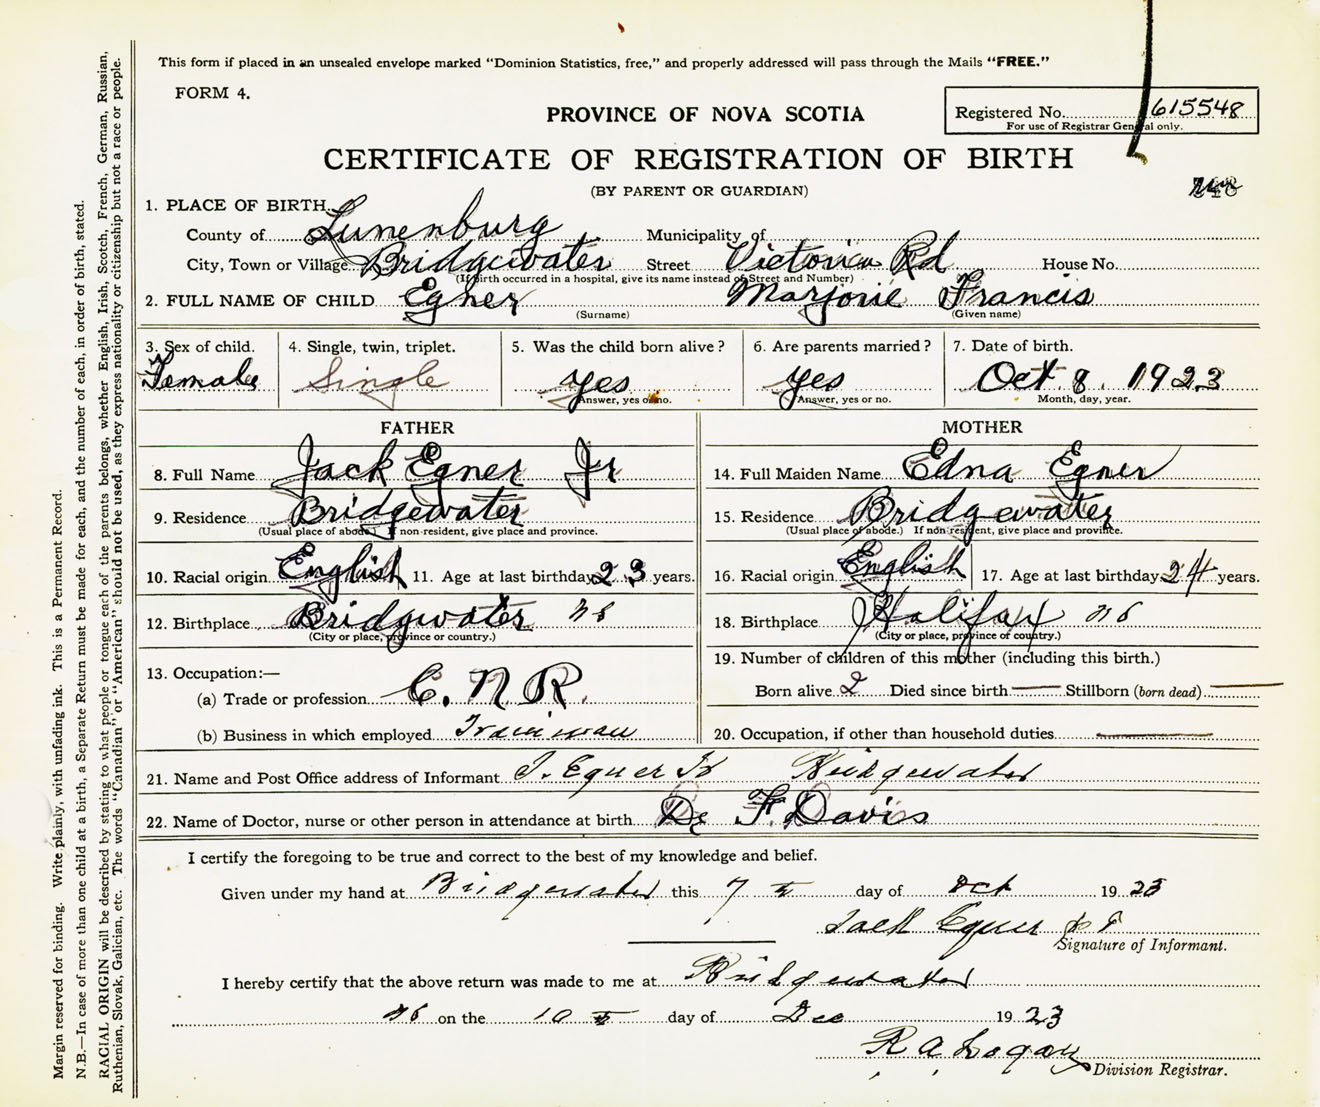 This form if placed in an unsealed envelope marked "Dominion Statistics, free," and properly addressed will pass through the Mails "FREE."
FORM 4.
PROVINCE OF NOVA SCOTIA
Registered No. 615548
For use of Registrar General only.
CERTIFICATE OF REGISTRATION OF BIRTH
(BY PARENT OR GUARDIAN)
1. PLACE OF BIRTH
County of Lunenburg Municipality of
City, Town or Village Bridgewater Street Victoria Rd House No.
(If birth occurred in a hospital, give its name instead of Street and Number)
2. FULL NAME OF CHILD Egner Marjorie Francis
(Surname) (Given name)
3. Sex of child. 4. Single, twin, triplet. 5. Was the child born alive? 6. Are parents married? 7. Date of birth.
Female Single yes yes Oct 8. 1923
Answer, yes or no. Answer, yes or no. Month, day, year.
FATHER MOTHER
8. Full Name Jack Egner Jr 14. Full Maiden Name Edna Egner
9. Residence Bridgewater 15. Residence Bridgewater
(Usual place of abode.) If non-resident, give place and province. (Usual place of abode.) If non-resident, give place and province.
10. Racial origin English 11. Age at last birthday 23 years. 16. Racial origin English 17. Age at last birthday 24 years.
12. Birthplace Bridgewater NS 18. Birthplace Halifax NS
(City or place, province or country.) (City or place, province or country.)
19. Number of children of this mother (including this birth.)
13. Occupation:—
(a) Trade or profession C. N R. Born alive 2 Died since birth — Stillborn (born dead) —
(b) Business in which employed Trainman 20. Occupation, if other than household duties —
21. Name and Post Office address of Informant J. Egner Jr Bridgewater
22. Name of Doctor, nurse or other person in attendance at birth Dr F. Davis
I certify the foregoing to be true and correct to the best of my knowledge and belief.
Given under my hand at Bridgewater this 7th day of Oct 1923
Jack Egner
Signature of Informant.
I hereby certify that the above return was made to me at Bridgewater
NS on the 10th day of Dec 1923
R A Logan
Division Registrar.
Margin reserved for binding. Write plainly, with unfading ink. This is a Permanent Record.
N.B.—In case of more than one child at a birth, a Separate Return must be made for each, and the number of each, in order of birth, stated.
RACIAL ORIGIN will be described by stating to what people or tongue each of the parents belongs, whether English, Irish, Scotch, French, German, Russian,
Ruthenian, Slovak, Galician, etc. The words "Canadian" or "American" should not be used, as they express nationality or citizenship but not a race or people.